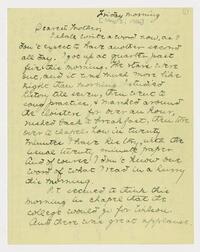 Friday Morning
Dearest Mother,
I shall write a word now, as I
don't expect to have another second
all day. I got up at quarter past
five this morning. The stars were
out, and it was much more like
night than morning. I studied
Latin till seven, then went to
song practice, &
the cloister for over an hour,
rushed back to breakfast, then
over to chapel. Now in twenty
minutes I have with the
usual twenty minute paper.
And of course I don't know one
word of what I read in a hurry
this morning.
It seemed to think this
morning in chapel that the
college would go for Wilson.
And there was great applause.